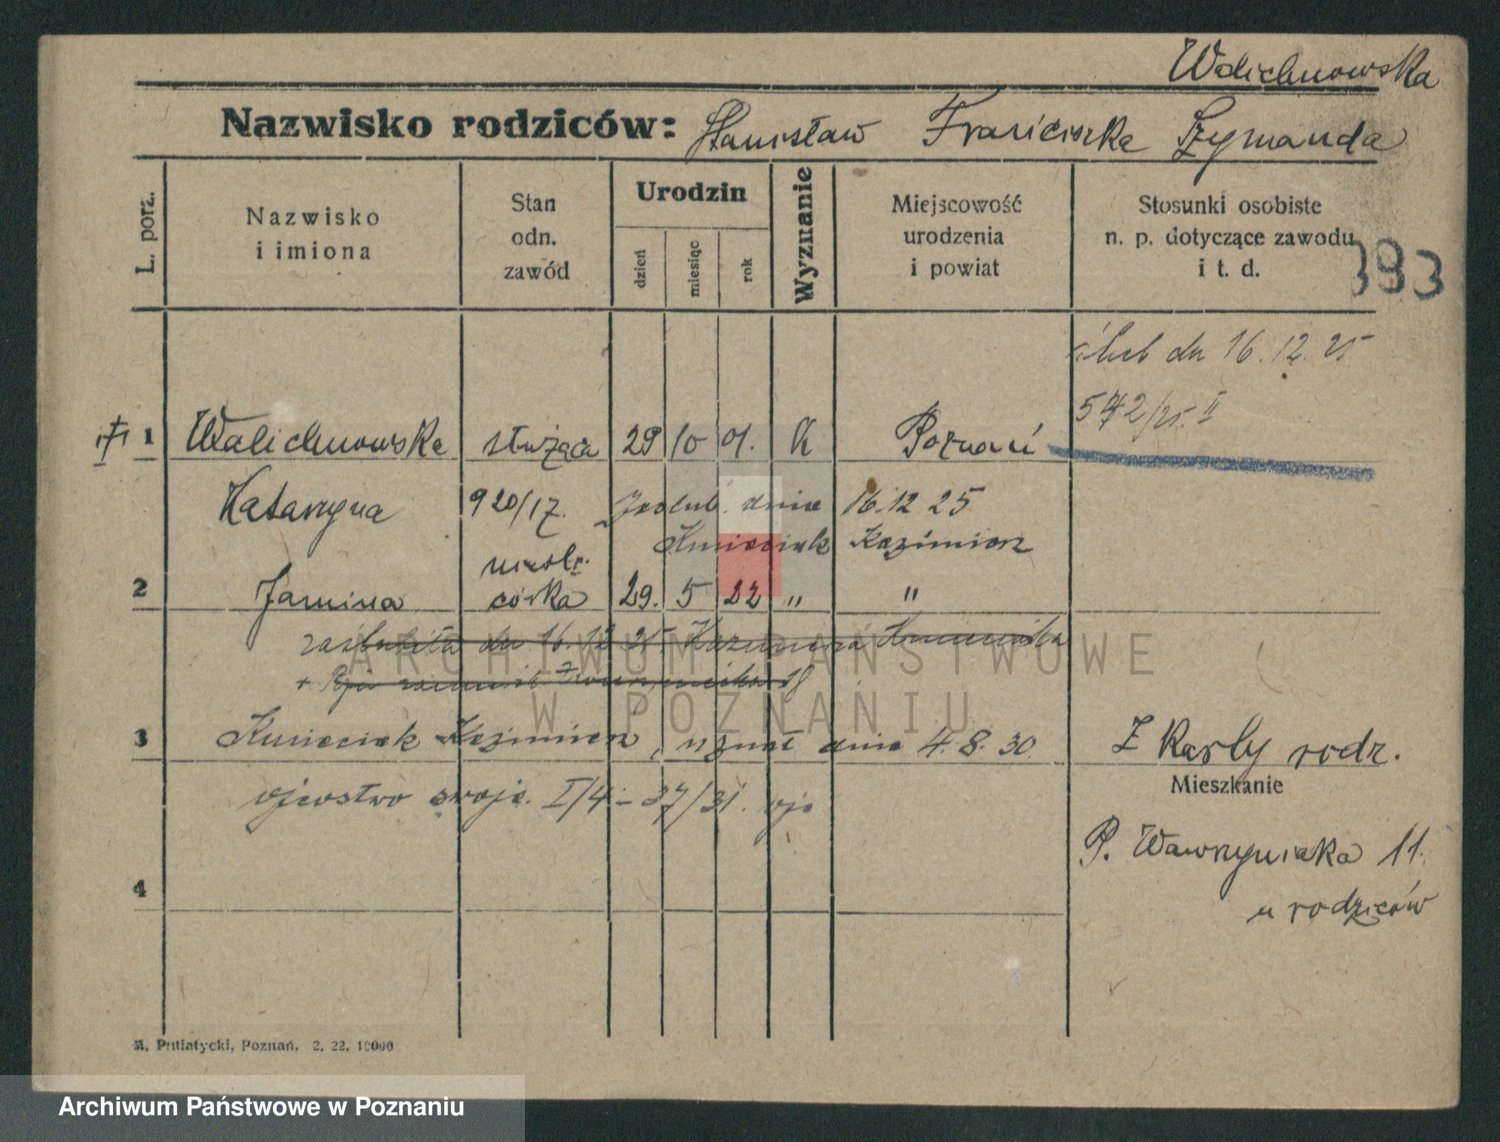 Walichnowska
Nazwisko rodziców: Stanisław Franciszka Szymanda
L. porz.
Nazwisko i imiona
Stan odn. zawód
Urodzin
dzień
miesiąc
rok
Wyznanie
Miejscowość urodzenia i powiat
Stosunki osobiste n. p. dotyczące zawodu i t. d.
393
ślub dn 16.12.25
572/25. II
1 Walichnowska służąca 29 10 01. K Poznań
Katarzyna 920/17. zaślub. dnia 16.12 25
Kmieciak Kazimierz
2 Janina nieśl. córka 29. 5 22 " "
zaślubiła dn 16.12 25 Kazimierza Kmieciaka
3 Kmieciak Kazimierz, uznał dnia 4.8.30
ojcostwo swoje. I/4-37/31.
Z Karty rodz.
Mieszkanie
P. Wawrzyniaka 11.
u rodziców
4
M. Putiatycki, Poznań. 2. 22. 10000
ARCHIWUM PAŃSTWOWE
W POZNANIU
Archiwum Państwowe w Poznaniu